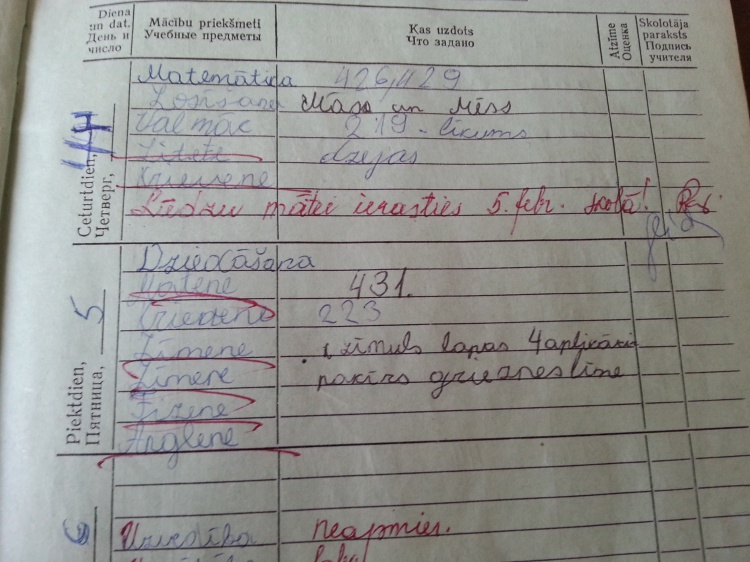 Diena un dat. День и число
Mācību priekšmeti Учебные предметы
Kas uzdots Что задано
Atzīme Оценка
Skolotāja paraksts Подпись учителя
Ceturtdien, Четверг, 4
Matemātika 426,429
Lasīšana Māsa un Mēss
Valmāc 219 - likums
dzejas
Krievene
Lūdzu mātei ierasties 5. febr. skolā!
Piektdien, Пятница, 5
Dziedāšana
Matene 431.
Krievene 223
Zīmene zīmuls lapas 4aplikācii
Zīmene papīrs grieznes līme
Fizene
Anglene
6
Uzvedība neapmier.